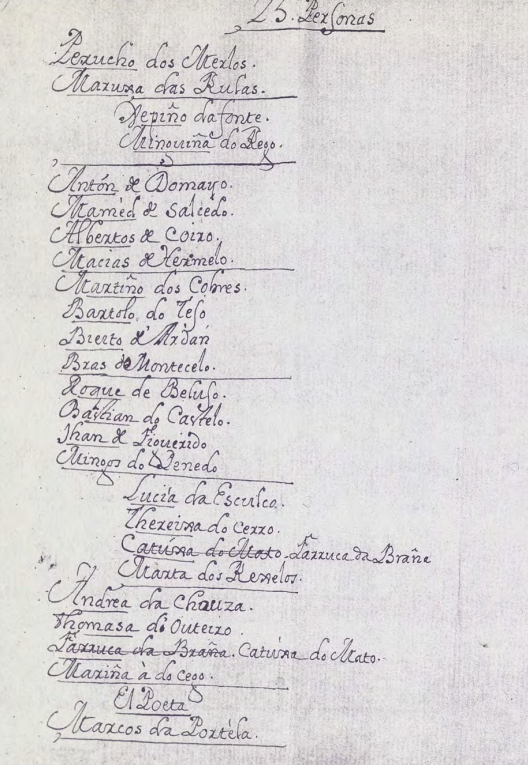 25. Personas
Perucho dos Merlos.
Maruxa das Rulas.
Pepiño da fonte.
Minguiña do Rego.
Antón de Domayo.
Mamed de Salcedo.
Albertos de Coiro.
Macias de Hermelo.
Martiño dos Cobres.
Bartolo do Teso
Bieito d'Ardan
Bras de Montecelo.
Roque de Beluso.
Bastian do Castelo.
Jhan de Figueirido
Mingos do Penedo
Lucía da Esculca.
Thereixa do Cerro.
Catuxa do Mato Farruca da Braña
Marta dos Rexelos.
Andrea da Chauza.
Thomasa do Outeiro.
Farruca da Braña. Catúxa do Mato.
Mariña à do cego.
El Poeta
Marcos da Portéla.